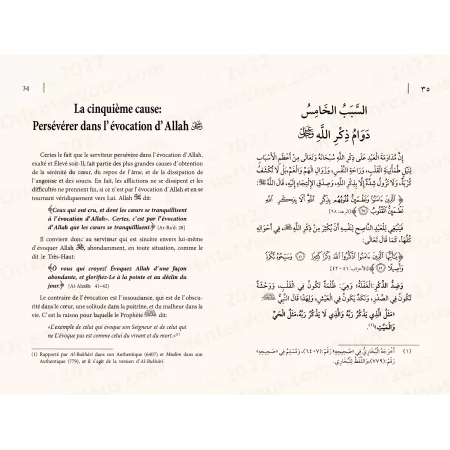 34
La cinquième cause:
Persévérer dans l'évocation d'Allah ﷻ
Certes le fait que le serviteur persévère dans l'évocation d'Allah,
exalté et Élevé soit-Il, fait partie des plus grandes causes d'obtention
de la sérénité du cœur, du repos de l'âme, et de la dissipation de
l'angoisse et des soucis. En fait, les afflictions ne se dissipent et les
difficultés ne prennent fin, si ce n'est par l'évocation d'Allah et en se
tournant véridiquement vers Lui. Allah ﷻ dit:
﴾Ceux qui ont cru, et dont les cœurs se tranquillisent
à l'évocation d'Allah». Certes, c'est par l'évocation
d'Allah que les cœurs se tranquillisent.﴿ [Ar-Rad: 28]
Il convient donc au serviteur qui est sincère envers lui-même
d'évoquer Allah ﷻ, abondamment, en toute situation, comme le
dit le Très-Haut:
﴾O vous qui croyez! Évoquez Allah d'une façon
abondante, et glorifiez-Le à la pointe et au déclin du
jour.﴿ [Al-Ahzâb: 41-42]
Le contraire de l'évocation est l'insouciance, qui est de l'obscu-
rité dans le cœur, une solitude dans la poitrine, et du malheur dans la
vie. C'est la raison pour laquelle le Prophète ﷺ dit:
«L'exemple de celui qui évoque son Seigneur et de celui qui
ne L'évoque pas est comme celui du vivant et du mort.»(1)
(1) Rapporté par Al-Bukhârî dans son Authentique (6407) et Muslim dans son
Authentique (779), et il s'agit de la version d'Al-Bukhârî.
٣٥
السَّبَبُ الْخَامِسُ
دَوَامُ ذِكْرِ اللَّهِ ﷻ
إِنَّ مُدَاوَمَةَ الْعَبْدِ عَلَى ذِكْرِ اللَّهِ سُبْحَانَهُ وَتَعَالَى مِنْ أَعْظَمِ الْأَسْبَابِ
لِنَيْلِ طُمَأْنِينَةِ الْقَلْبِ، وَرَاحَةِ النَّفْسِ، وَزَوَالِ الْهَمِّ وَالْغَمِّ، بَلْ لَا تُكْشَفُ
كُرْبَةٌ، وَلَا تَزُولُ شِدَّةٌ إِلَّا بِذِكْرِ اللَّهِ، وَصِدْقِ الِالْتِجَاءِ إِلَيْهِ، قَالَ اللَّهُ
﴿الَّذِينَ آمَنُوا وَتَطْمَئِنُّ قُلُوبُهُم بِذِكْرِ اللَّهِ أَلَا بِذِكْرِ اللَّهِ
تَطْمَئِنُّ الْقُلُوبُ ۝٢٨﴾ [الرعد: ٢٨]
فَيَنْبَغِي لِلْعَبْدِ النَّاصِحِ لِنَفْسِهِ أَنْ يُكْثِرَ مِنْ ذِكْرِ اللَّهِ ﷻ فِي أَحْوَالِهِ
كُلِّهَا، كَمَا قَالَ تَعَالَى:
﴿يَا أَيُّهَا الَّذِينَ آمَنُوا اذْكُرُوا اللَّهَ ذِكْرًا كَثِيرًا ۝٤١ وَسَبِّحُوهُ بُكْرَةً
وَأَصِيلًا ۝٤٢﴾ [الأحزاب: ٤١ - ٤٢]
وَضِدُّ الذِّكْرِ: الْغَفْلَةُ؛ وَهِيَ: ظُلْمَةٌ تَكُونُ فِي الْقَلْبِ، وَوَحْشَةٌ
تَكُونُ فِي الصَّدْرِ، وَنَكَدٌ يَكُونُ فِي الْعَيْشِ، وَلِهَذَا قَالَ النَّبِيُّ ﷺ:
«مَثَلُ الَّذِي يَذْكُرُ رَبَّهُ وَالَّذِي لَا يَذْكُرُ رَبَّهُ، مَثَلُ الْحَيِّ
وَالْمَيِّتِ»(١).
(١) أَخْرَجَهُ الْبُخَارِيُّ فِي «صَحِيحِهِ» رَقْم: (٦٤٠٧)، وَمُسْلِمٌ فِي «صَحِيحِهِ»
رَقْم: (٧٧٩)، وَاللَّفْظُ لِلْبُخَارِيِّ.